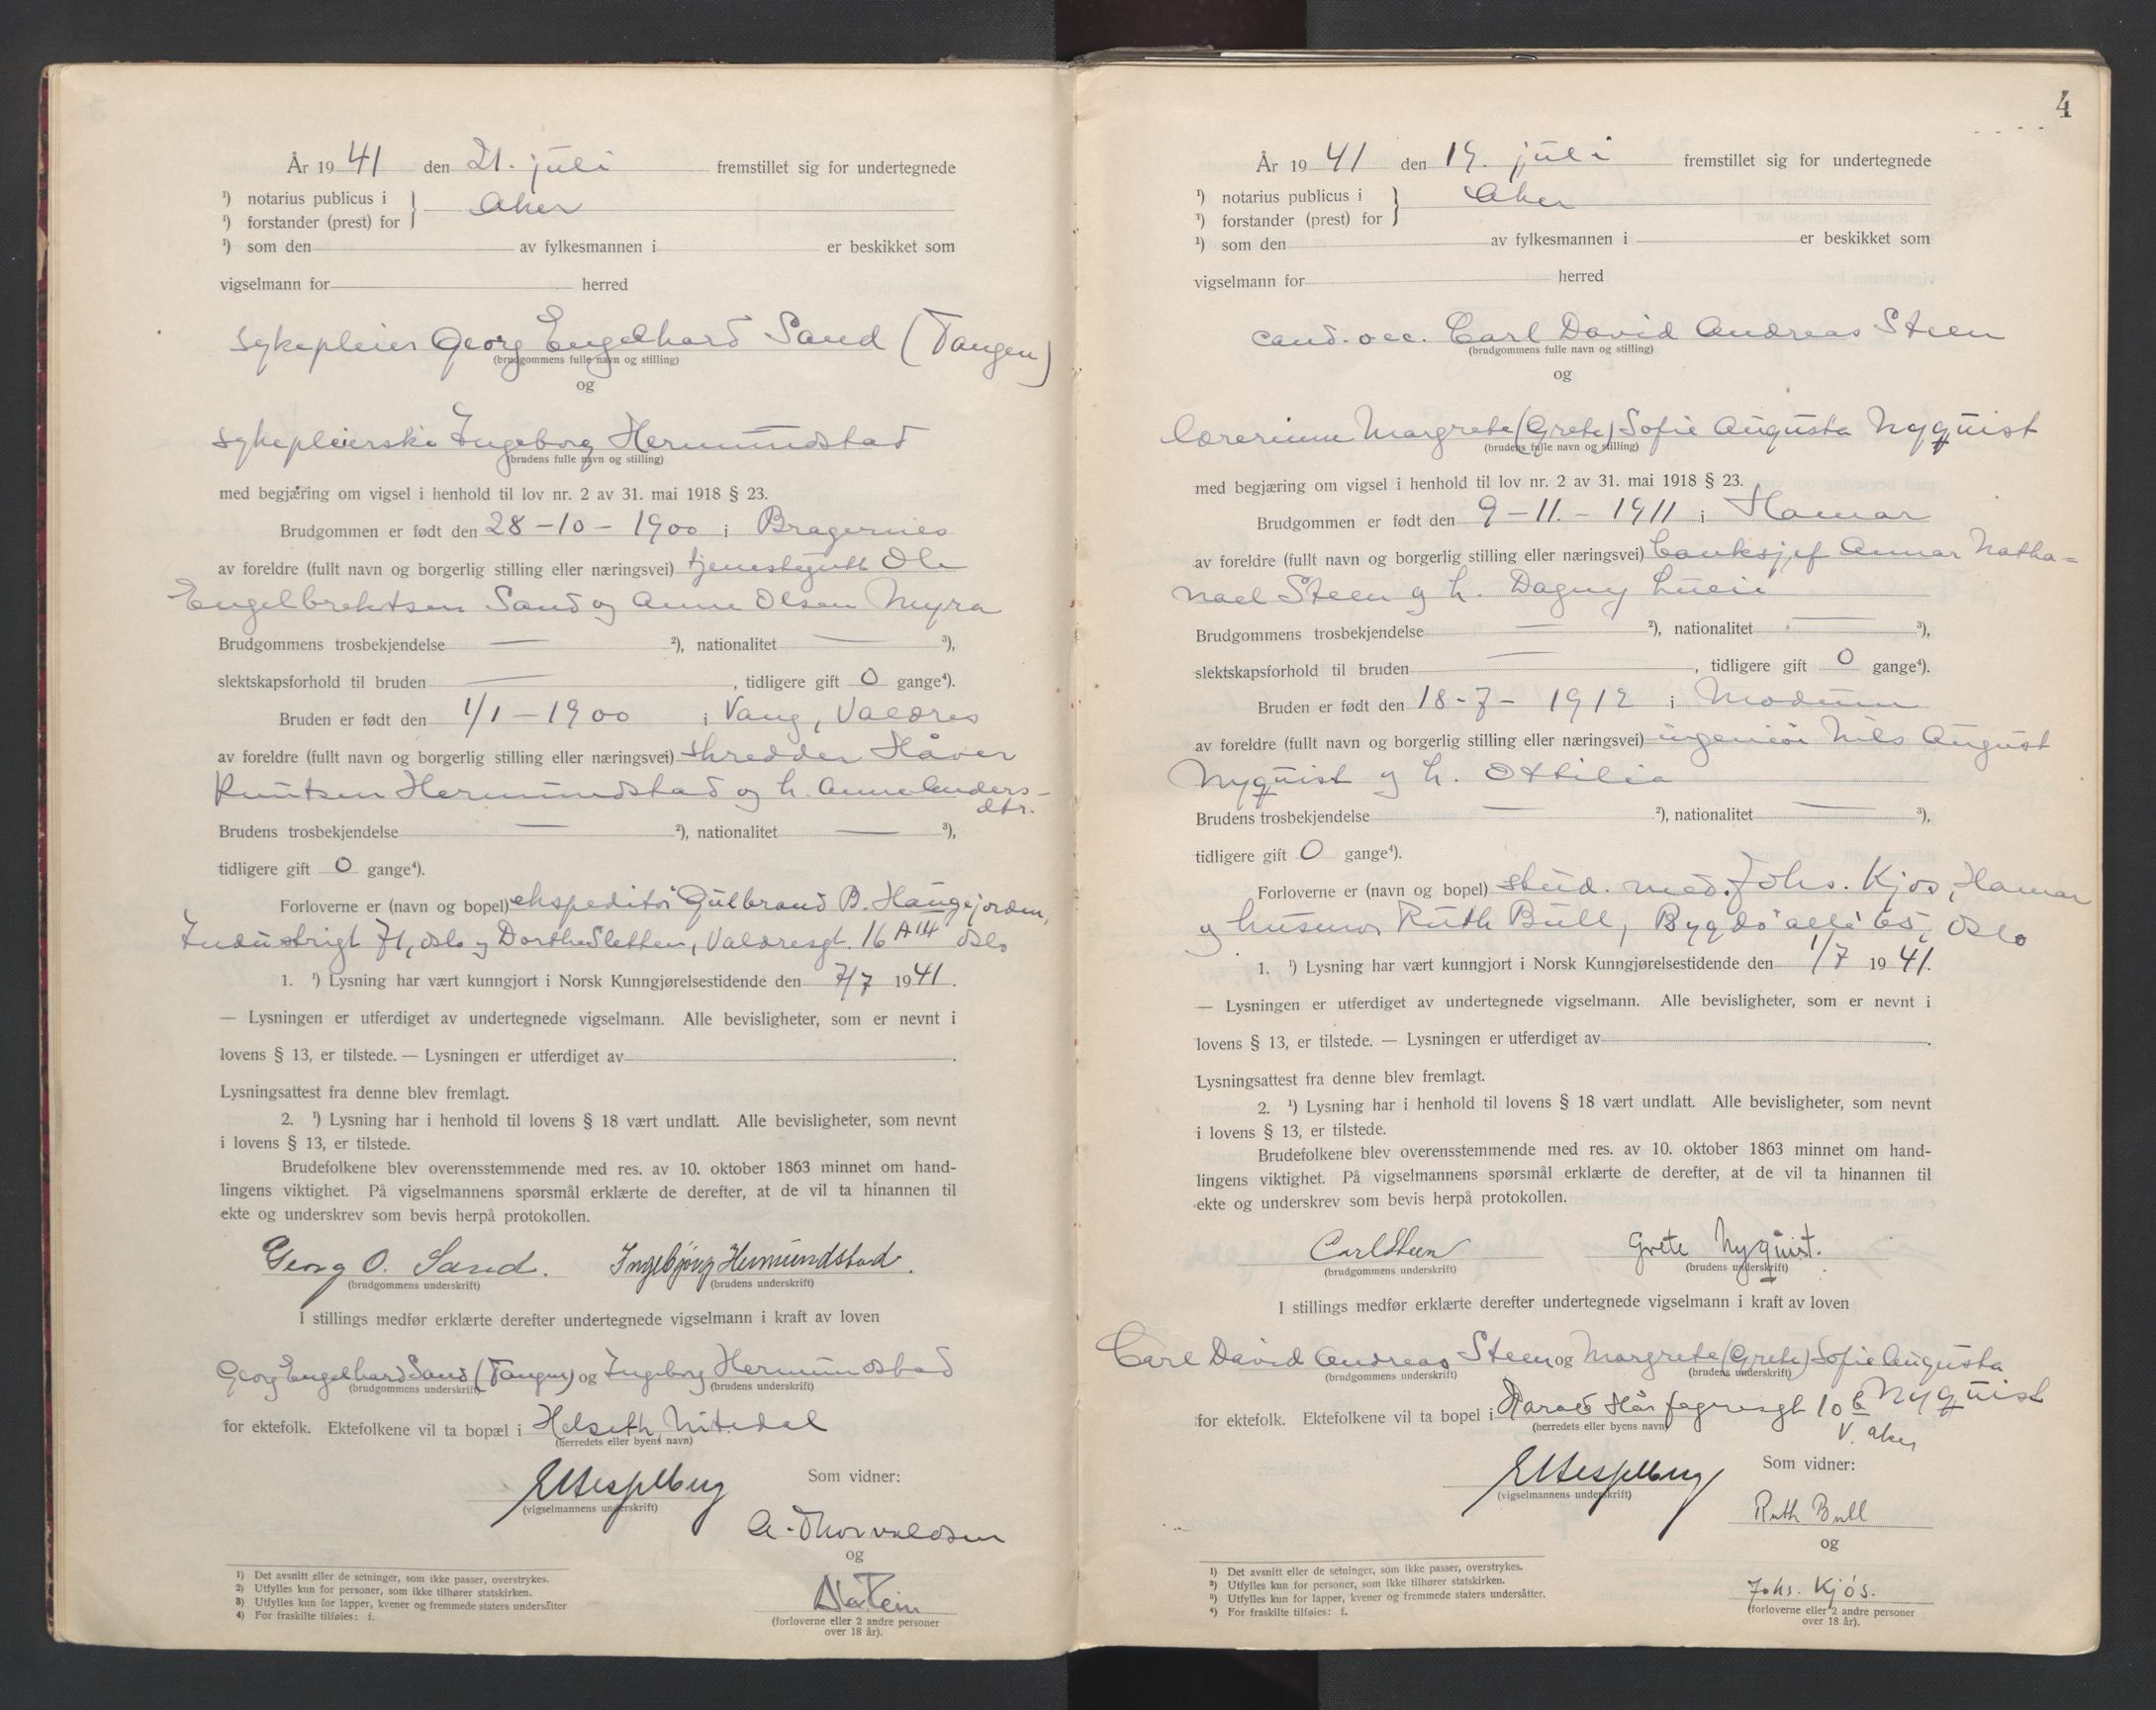 År 1941 den 21. juli fremstillet sig for undertegnede
¹) notarius publicus i
¹) forstander (prest) for } Aker
¹) som den av fylkesmannen i er beskikket som
vigselmann for herred
sykepleier Georg Engelhard Sand (Tangen)
(brudgommens fulle navn og stilling)
og
sykepleierske Ingeborg Hermundstad
(brudens fulle navn og stilling)
med begjæring om vigsel i henhold til lov nr. 2 av 31. mai 1918 § 23.
Brudgommen er født den 28-10-1900 i Bragernes
av foreldre (fullt navn og borgerlig stilling eller næringsvei) tjenestegutt Ole
Engelbrektsen Sand og Anne Olsen Myra
Brudgommens trosbekjendelse — ²), nationalitet — ³),
slektskapsforhold til bruden — , tidligere gift 0 gange⁴).
Bruden er født den 1/1-1900 i Vang, Valdres
av foreldre (fullt navn og borgerlig stilling eller næringsvei) skredder Håver
Knutsen Hermundstad og h. Anne Anders-
dtr.
Brudens trosbekjendelse — ²), nationalitet — ³),
tidligere gift 0 gange⁴).
Forloverne er (navn og bopel) ekspeditør Gulbrand B. Haugejorden,
Industrigt 71, Oslo og Dorthe Sletten, Valdresgt. 16 A III Oslo
1. ¹) Lysning har vært kunngjort i Norsk Kunngjørelsestidende den 7/7 1941.
— Lysningen er utferdiget av undertegnede vigselmann. Alle bevisligheter, som er nevnt i
lovens § 13, er tilstede. — Lysningen er utferdiget av .
Lysningsattest fra denne blev fremlagt.
2. ¹) Lysning har i henhold til lovens § 18 vært undlatt. Alle bevisligheter, som nevnt
i lovens § 13, er tilstede.
Brudefolkene blev overensstemmende med res. av 10. oktober 1863 minnet om hand-
lingens viktighet. På vigselmannens spørsmål erklærte de derefter, at de vil ta hinannen til
ekte og underskrev som bevis herpå protokollen.
Georg O. Sand. Ingebjørg Hermundstad.
(brudgommens underskrift) (brudens underskrift)
I stillings medfør erklærte derefter undertegnede vigselmann i kraft av loven
Georg Engelhard Sand (Tangen) og Ingeborg Hermundstad
(brudgommens underskrift) (brudens underskrift)
for ektefolk. Ektefolkene vil ta bopæl i Helseth Nitedal
(herredets eller byens navn)
Som vidner:
(vigselmannens underskrift)
A. Thorvaldsen
og
(forloverne eller 2 andre personer
over 18 år).
¹) Det avsnitt eller de setninger, som ikke passer, overstrykes.
²) Utfylles kun for personer, som ikke tilhører statskirken.
³) Utfylles kun for lapper, kvener og fremmede staters undersåtter
⁴) For fraskilte tilføies: f.
4
År 1941 den 19. juli fremstillet sig for undertegnede
¹) notarius publicus i
¹) forstander (prest) for } Aker
¹) som den av fylkesmannen i er beskikket som
vigselmann for herred
cand. oec. Carl David Andreas Steen
(brudgommens fulle navn og stilling)
og
lærerinne Margrete (Grete) Sofie Augusta Nyquist
(brudens fulle navn og stilling)
med begjæring om vigsel i henhold til lov nr. 2 av 31. mai 1918 § 23.
Brudgommen er født den 9-11-1911 i Hamar
av foreldre (fullt navn og borgerlig stilling eller næringsvei) banksjef Annar Natha=
nael Steen og h. Dagny Lucie
Brudgommens trosbekjendelse — ²), nationalitet — ³),
slektskapsforhold til bruden — , tidligere gift 0 gange⁴).
Bruden er født den 18-7-1912 i Modum
av foreldre (fullt navn og borgerlig stilling eller næringsvei) ingeniør Nils August
Nyquist og h. Ottilia
Brudens trosbekjendelse — ²), nationalitet — ³),
tidligere gift 0 gange⁴).
Forloverne er (navn og bopel) stud. med. Johs. Kjos, Hamar
og husmor Ruth Bull, Bygdø allé 65, Oslo
1. ¹) Lysning har vært kunngjort i Norsk Kunngjørelsestidende den 1/7 1941.
— Lysningen er utferdiget av undertegnede vigselmann. Alle bevisligheter, som er nevnt i
lovens § 13, er tilstede. — Lysningen er utferdiget av .
Lysningsattest fra denne blev fremlagt.
2. ¹) Lysning har i henhold til lovens § 18 vært undlatt. Alle bevisligheter, som nevnt
i lovens § 13, er tilstede.
Brudefolkene blev overensstemmende med res. av 10. oktober 1863 minnet om hand-
lingens viktighet. På vigselmannens spørsmål erklærte de derefter, at de vil ta hinannen til
ekte og underskrev som bevis herpå protokollen.
Carl Steen Grete Nyquist.
(brudgommens underskrift) (brudens underskrift)
I stillings medfør erklærte derefter undertegnede vigselmann i kraft av loven
Carl David Andreas Steen og Margrete (Grete) Sofie Augusta
(brudgommens underskrift) (brudens underskrift)
Nyquist
for ektefolk. Ektefolkene vil ta bopel i Harald Hårfagresgt 10 b
(herredets eller byens navn)
V. Aker
Som vidner:
(vigselmannens underskrift)
Ruth Bull
og
Johs. Kjos.
(forloverne eller 2 andre personer
over 18 år).
¹) Det avsnitt eller de setninger, som ikke passer, overstrykes.
²) Utfylles kun for personer, som ikke tilhører statskirken.
³) Utfylles kun for lapper, kvener og fremmede staters undersåtter.
⁴) For fraskilte tilføies: f.